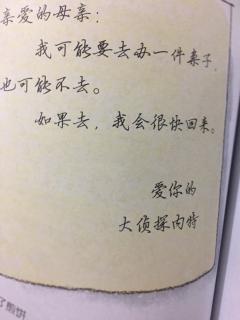 亲爱的母亲：
我可能要去办一件案子，
也可能不去。
如果去，我会很快回来。
爱你的
大侦探内特
了煎饼